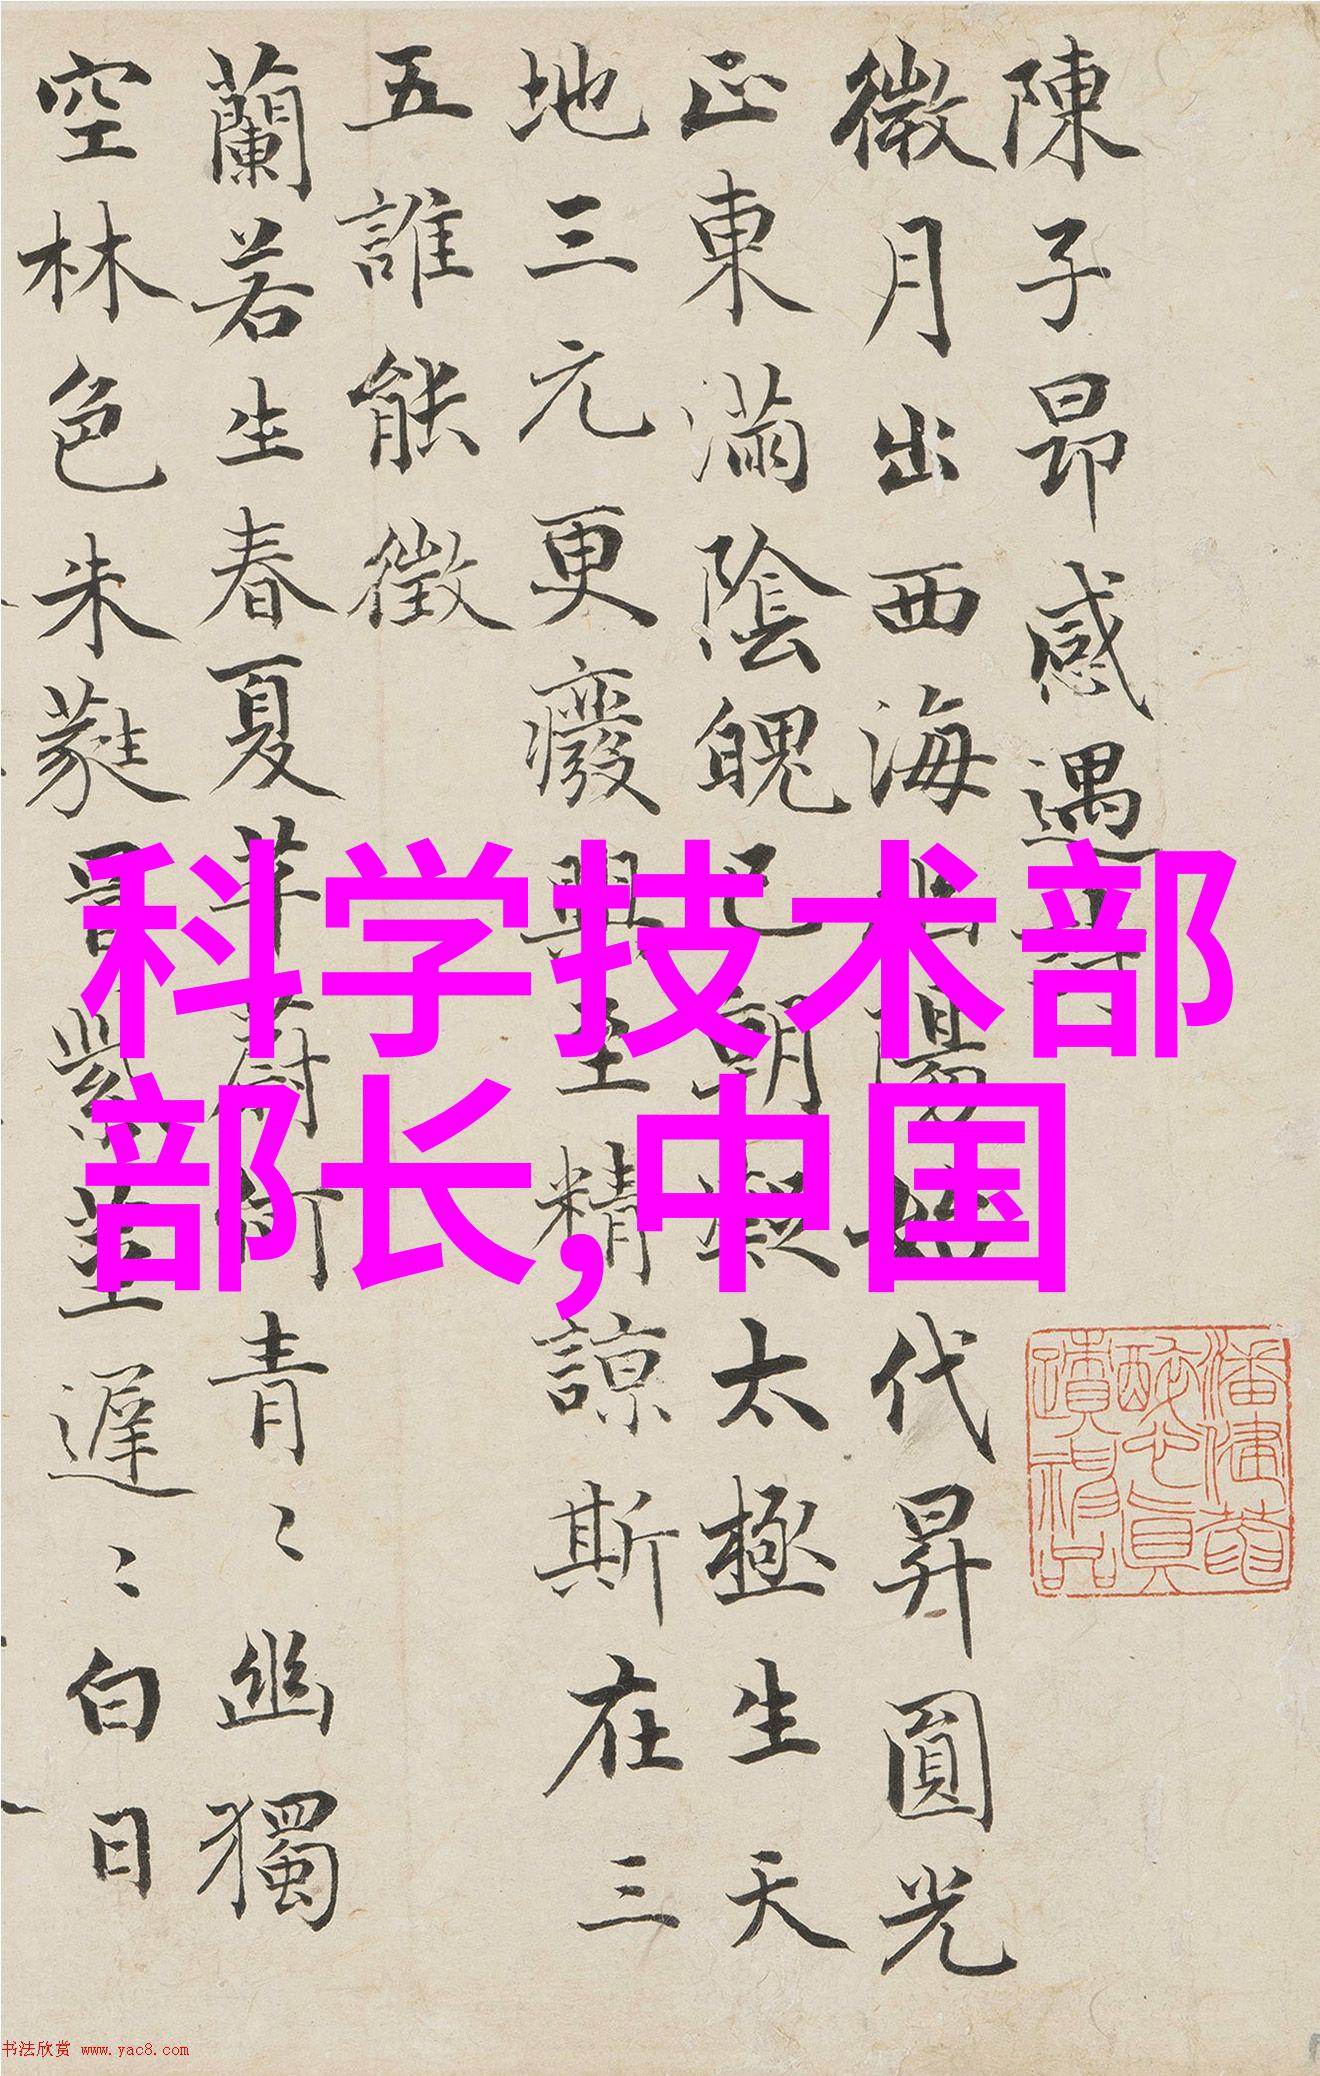 陳子昂感遇
微月出西海幽陽始代昇圓光
正東滿陰魄已朝凝太極生天
地三元更癈興至精諒斯在三
五誰能徵
蘭若生春夏芊蔚何青〻幽獨
空林色朱蕤冒紫莖遲〻白日
科学技术部
部长,中国
书法欣赏 www.yac8.com